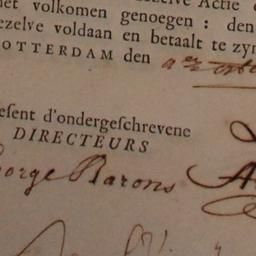 et volkomen genoegen : den
ezelve voldaan en betaalt te zyn
OTTERDAM den
eſent d'ondergeſchrevene
DIRECTEURS
George Barons